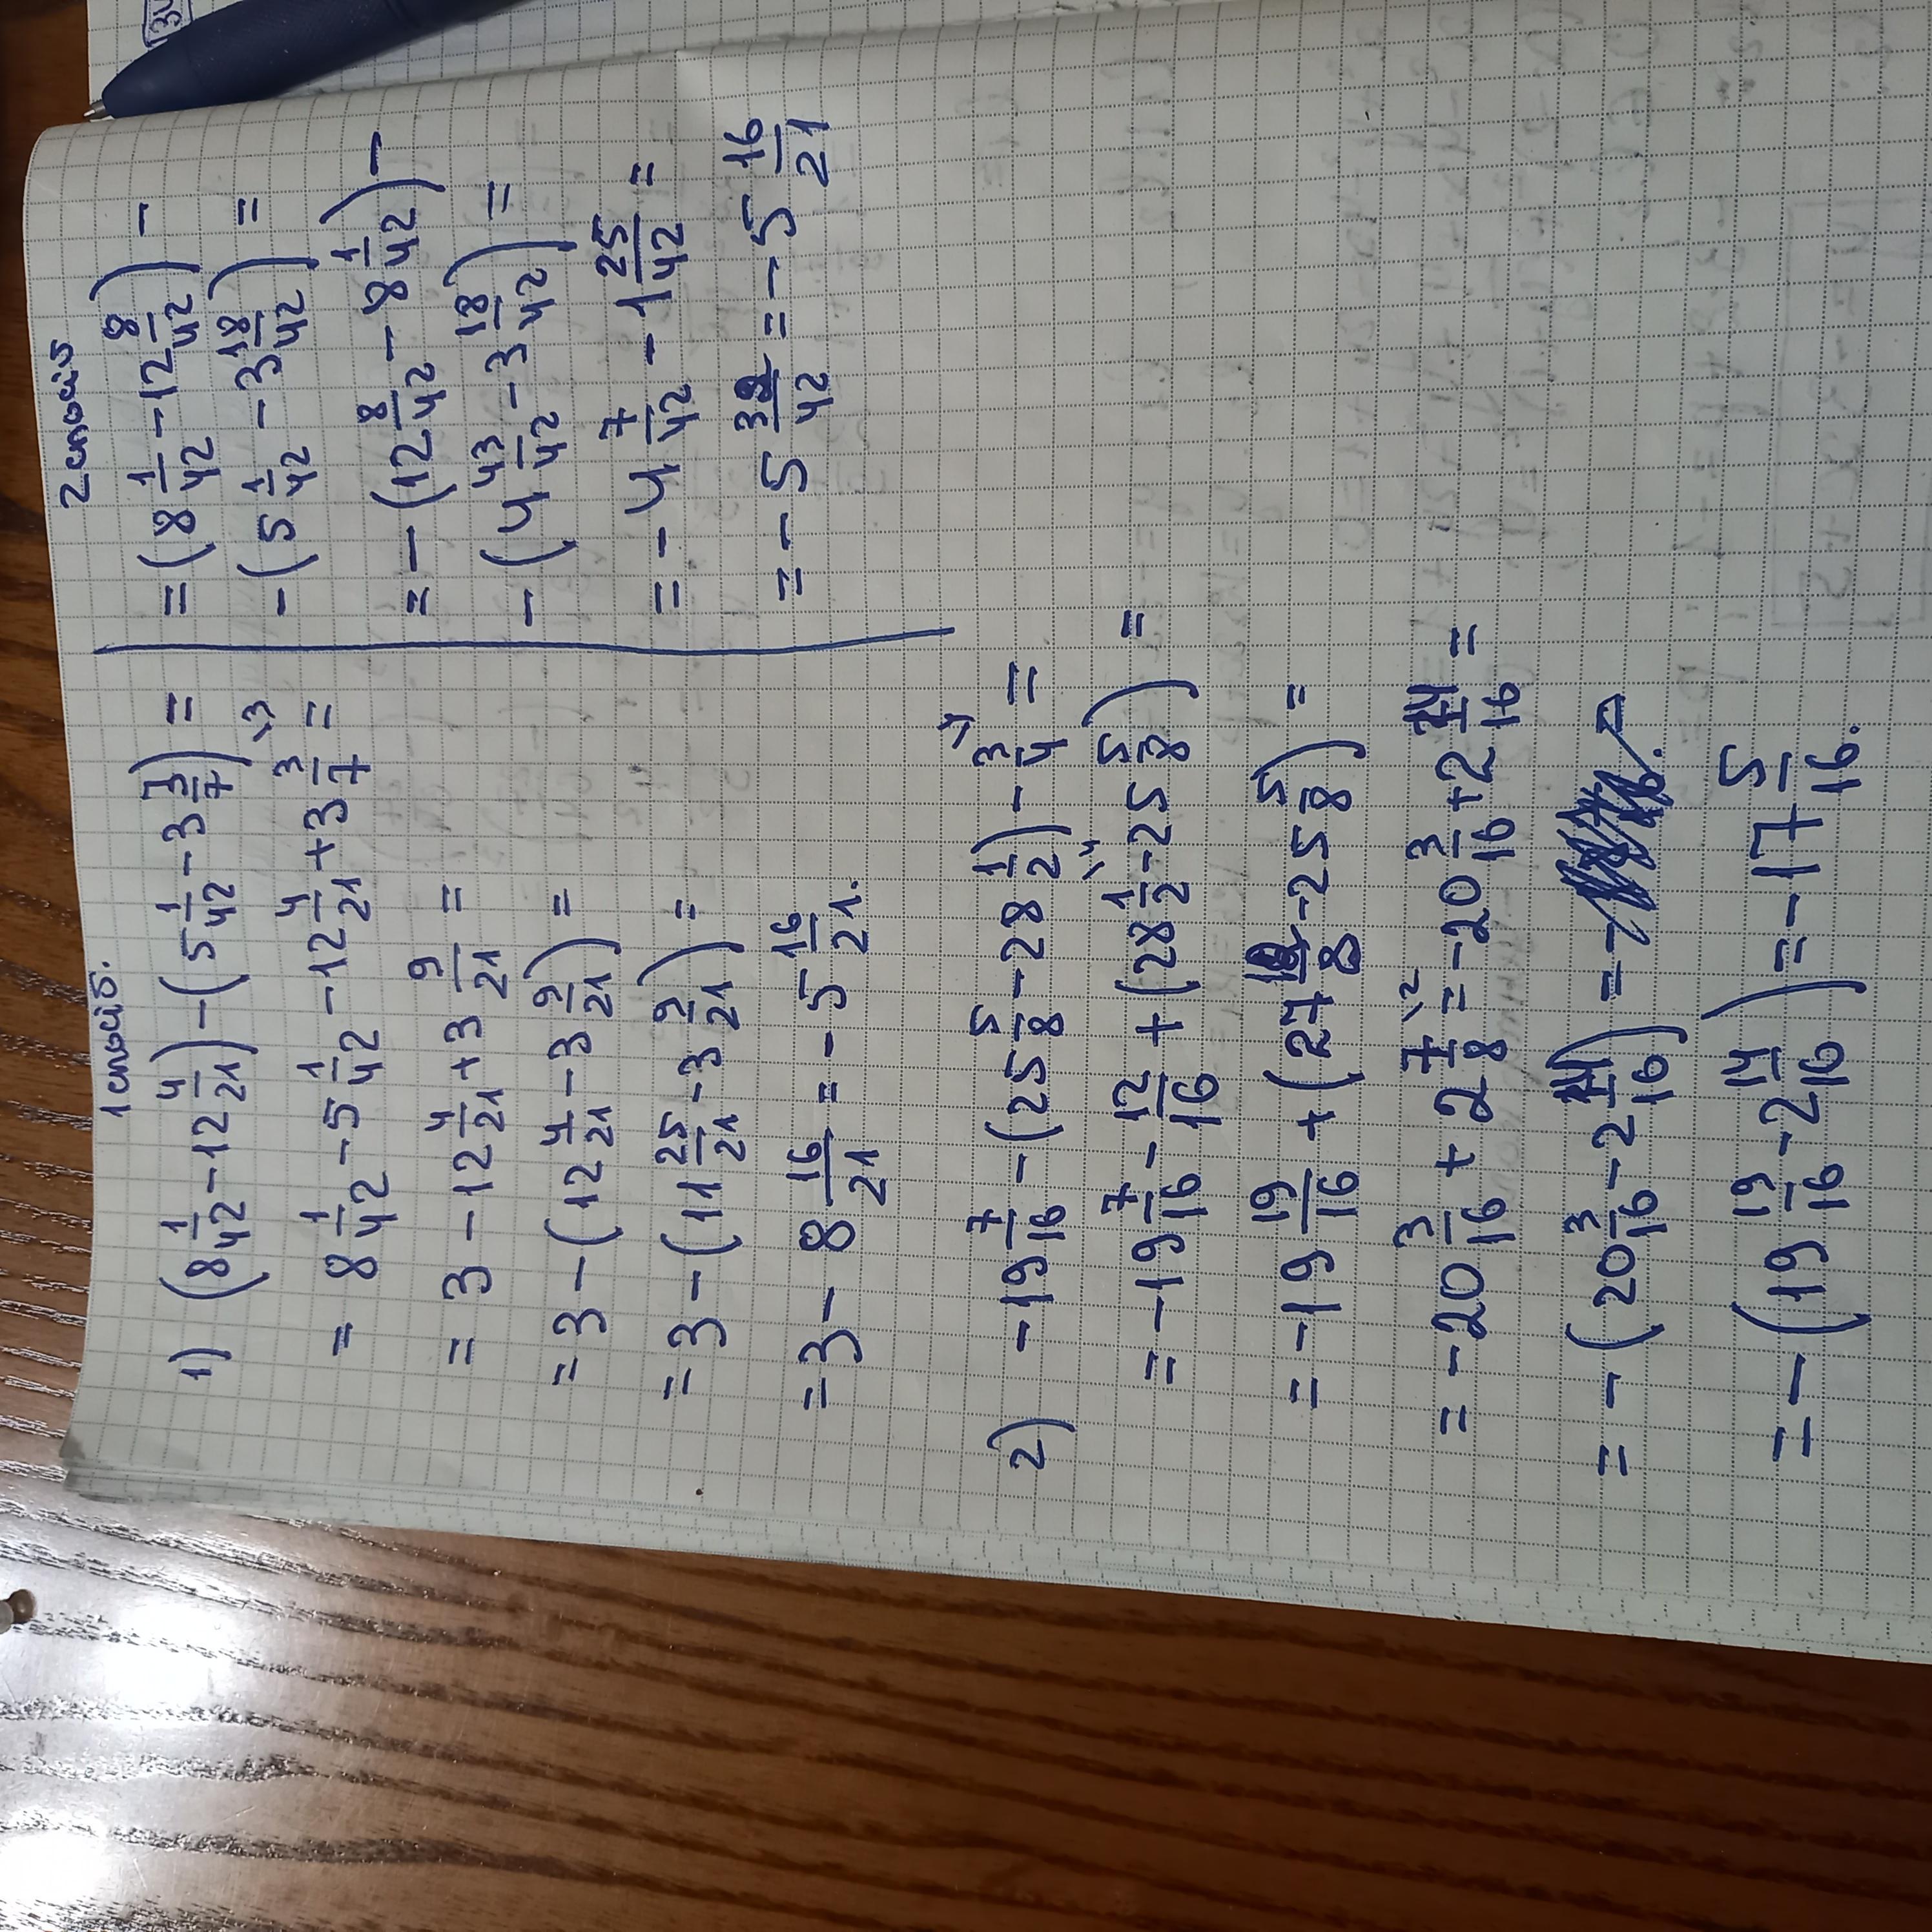 1 спосіб.
1) (8 1/42 - 12 4/21) - (5 1/42 - 3 3/7) =
= 8 1/42 - 5 1/42 - 12 4/21 + 3 3/7 \3 =
= 3 - 12 4/21 + 3 9/21 =
= 3 - (12 4/21 - 3 9/21) =
= 3 - (11 25/21 - 3 9/21) =
= 3 - 8 16/21 = - 5 16/21.
2 спосіб
= (8 1/42 - 12 8/42) -
- (5 1/42 - 3 18/42) =
= - (12 8/42 - 8 1/42) -
- (4 43/42 - 3 18/42) =
= - 4 7/42 - 1 25/42 =
= - 5 32/42 = - 5 16/21
2) -19 7/16 - (25 5/8 - 28 1/2) - 3/4 \4 =
= -19 7/16 - 12/16 + (28 1/2 \4 - 25 5/8) =
= -19 19/16 + (27 12/8 - 25 5/8) =
= -20 3/16 + 2 7/8 \2 = -20 3/16 + 2 14/16 =
= - (20 3/16 - 2 14/16) = -
= - (19 19/16 - 2 14/16) = - 17 5/16.